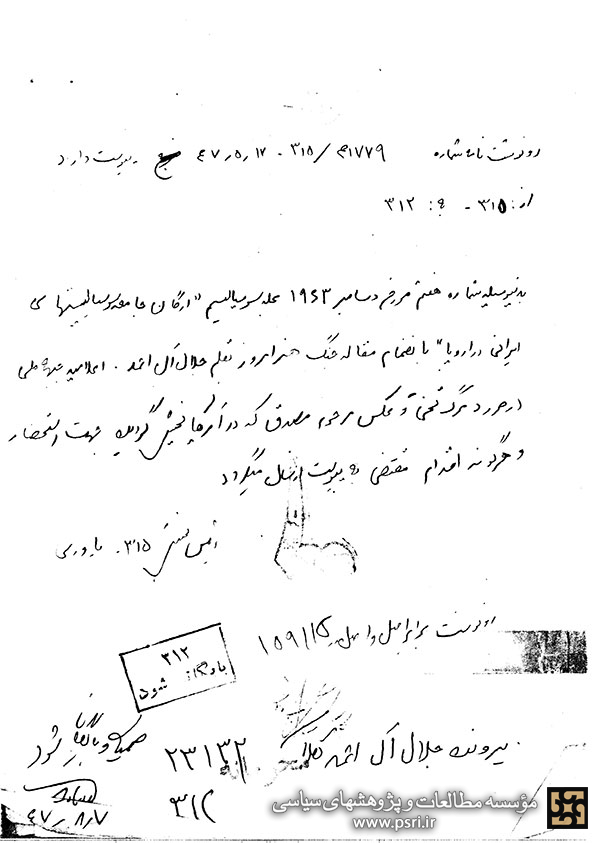 رونوشت نامه شماره ۳۱۵/۳۱۷۷۹ - ۴۷٫۵٫۱۷ پیوست دارد
از: ۳۱۵ - به: ۳۱۲
بدینوسیله شماره هفتم مورخ دسامبر ۱۹۶۳ مجله سوسیالیسم "ارگان جامعه سوسیالیستهای
ایرانی در اروپا" با انضمام مقاله جنگ هنر امروز بقلم جلال آل احمد. اعلامیه جبهه ملی
در مورد مرگ تختی و عکس مرحوم مصدق که در آمریکا پخش گردیده جهت استحضار
و هرگونه اقدام مقتضی به پیوست ارسال میگردد
رئیس بخش ۳۱۵. یاوری
رونوشت برابر اصل و اصل در
۳۱۲
بایگانی شود
پرونده جلال آل احمد کلاسه ۲۳۱۳۲
ضمیمه و بایگانی شود
۳۱۲
۴۷٫۸٫۷
مؤسسه مطالعات و پژوهشهای سیاسی
www.psri.ir